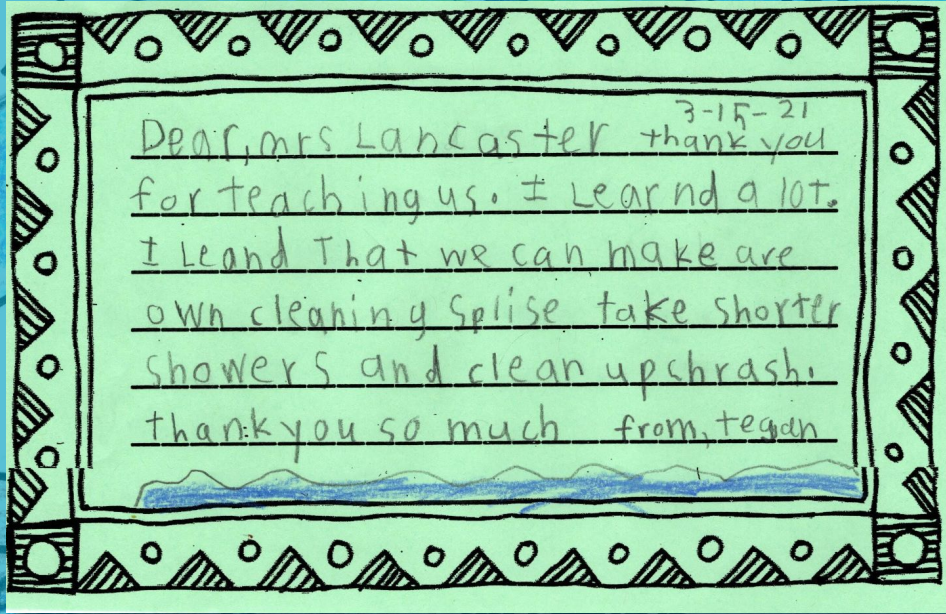 3-15-21
Dear, mrs Lancaster thank you
for teaching us. I Learnd a lot.
I Leand That we can make are
own cleaning Splise take shorter
showers and clean up chrash.
thank you so much from, tegan